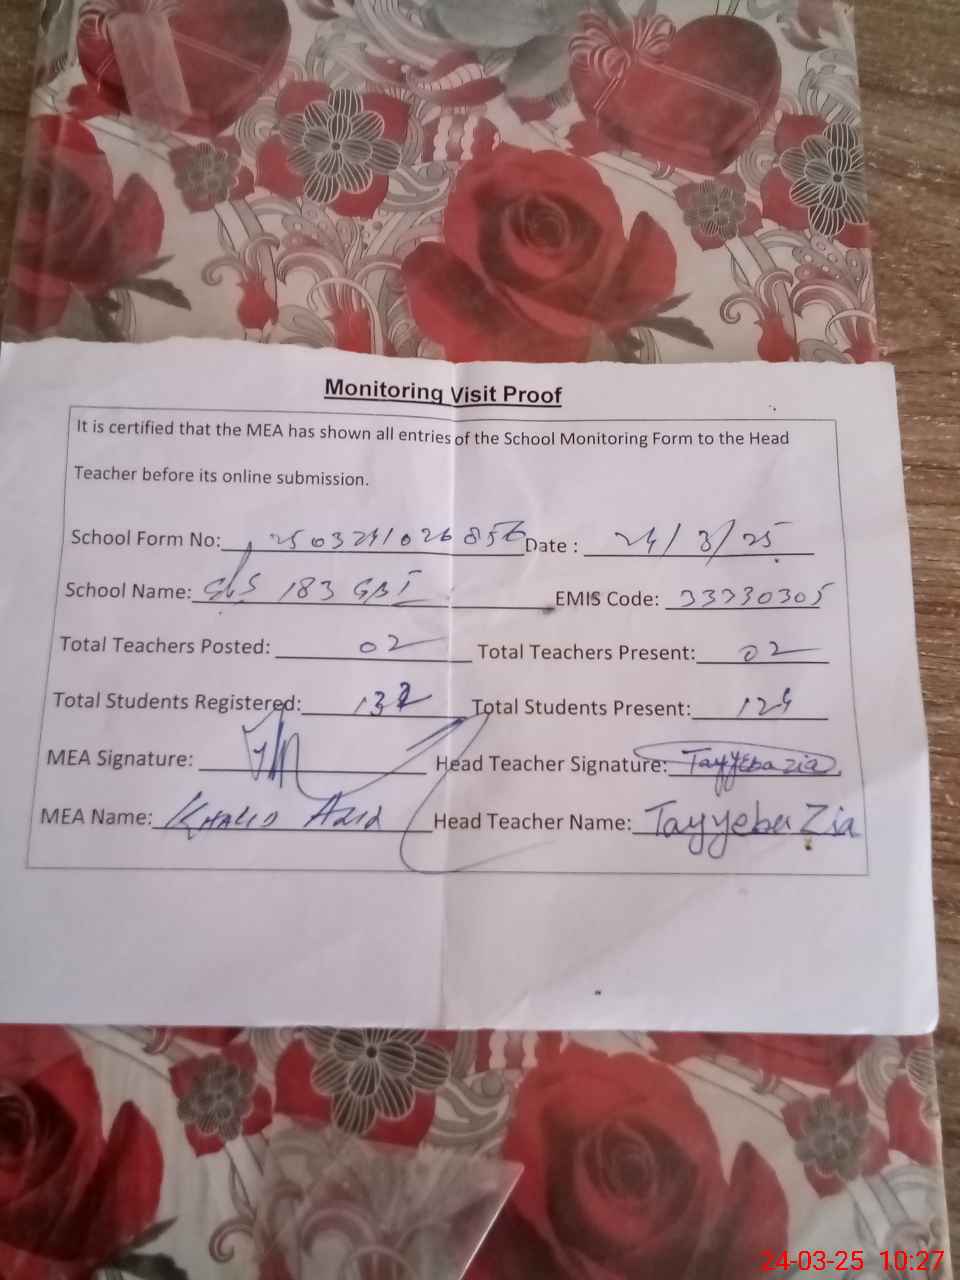 Monitoring Visit Proof
It is certified that the MEA has shown all entries of the School Monitoring Form to the Head
Teacher before its online submission.
School Form No: 2503241026856 Date : 24/3/25
School Name: 183 GB I EMIS Code: 33230305
Total Teachers Posted: 02 Total Teachers Present: 02
Total Students Registered: Total Students Present: 124
MEA Signature: Head Teacher Signature: Tayyeba Zia
MEA Name: Khalid Head Teacher Name: Tayyeba Zia
24-03-25 10:27